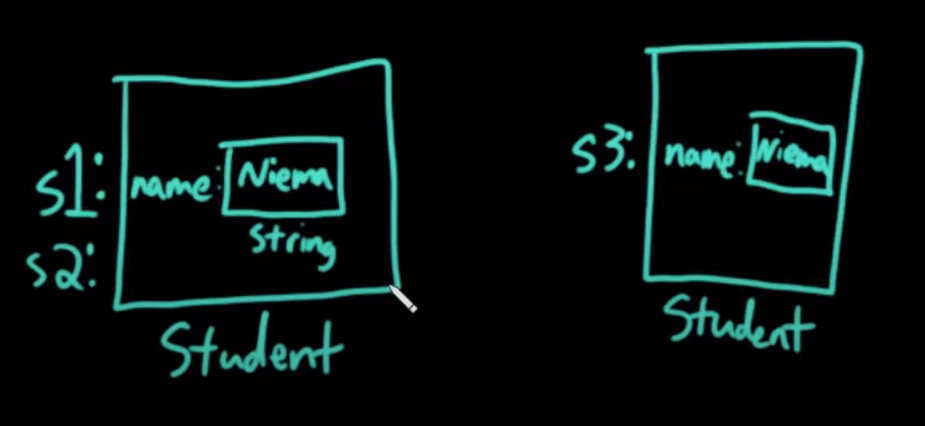 s1:
name: Niema
string
s2:
Student
s3:
name: Niema
Student